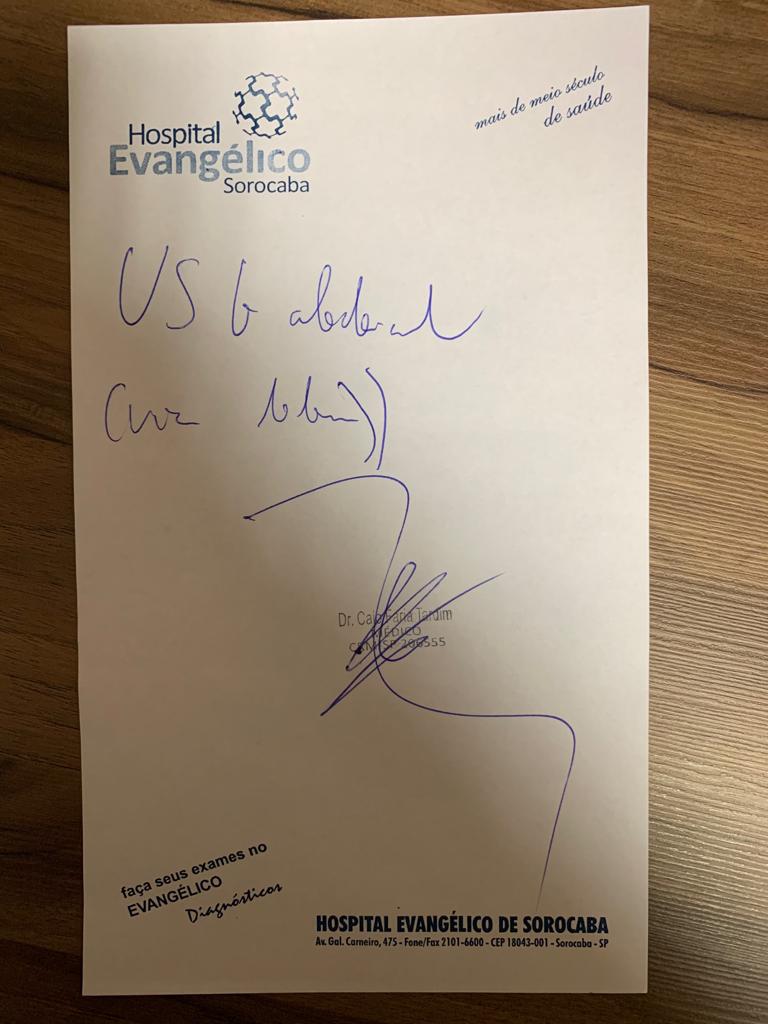 Hospital
Evangélico
Sorocaba
mais de meio século
de saúde
US
Dr. Caio Faria Tardim
MÉDICO
CRM/SP 206555
faça seus exames no
EVANGÉLICO
Diagnósticos
HOSPITAL EVANGÉLICO DE SOROCABA
Av. Gal. Carneiro, 475 - Fone/Fax 2101-6600 - CEP 18043-001 - Sorocaba - SP